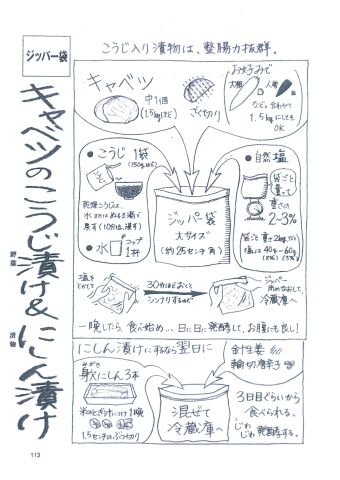 ジッパー袋
キャベツのこうじ漬け&にしん漬け
野菜
漬物
こうじ入り漬物は、整腸力抜群。
キャベツ
中1個
(1.5kgほど)
ざく切り
お好みで
大根
人参
などと合わせて
1.5kgにしても
OK
こうじ 1袋
乾燥こうじは、
水またはぬるま湯で
戻す(10分位、浸す)
水
コップ
1杯
ジッパー袋
大サイズ
(約25センチ角)
自然塩
袋ごと
量って
重さの
2~3%
袋ごと重さ2kgなら
塩は40g~60g
(2%) (3%)
塩を
入れて
30分ほどおくと
シンナリするので
ジッパー
閉めなおして、
冷蔵庫へ
一晩したら、食べ始め…日に日に発酵して、お腹にも良し!
にしん漬けにするなら翌日に
身欠にしん3本
米のとぎ汁につけ1晩
1.5センチのぶつ切り
混ぜて
冷蔵庫へ
針生姜
輪切唐辛子
3日目ぐらいから
食べられる。
じわじわ発酵する。
113